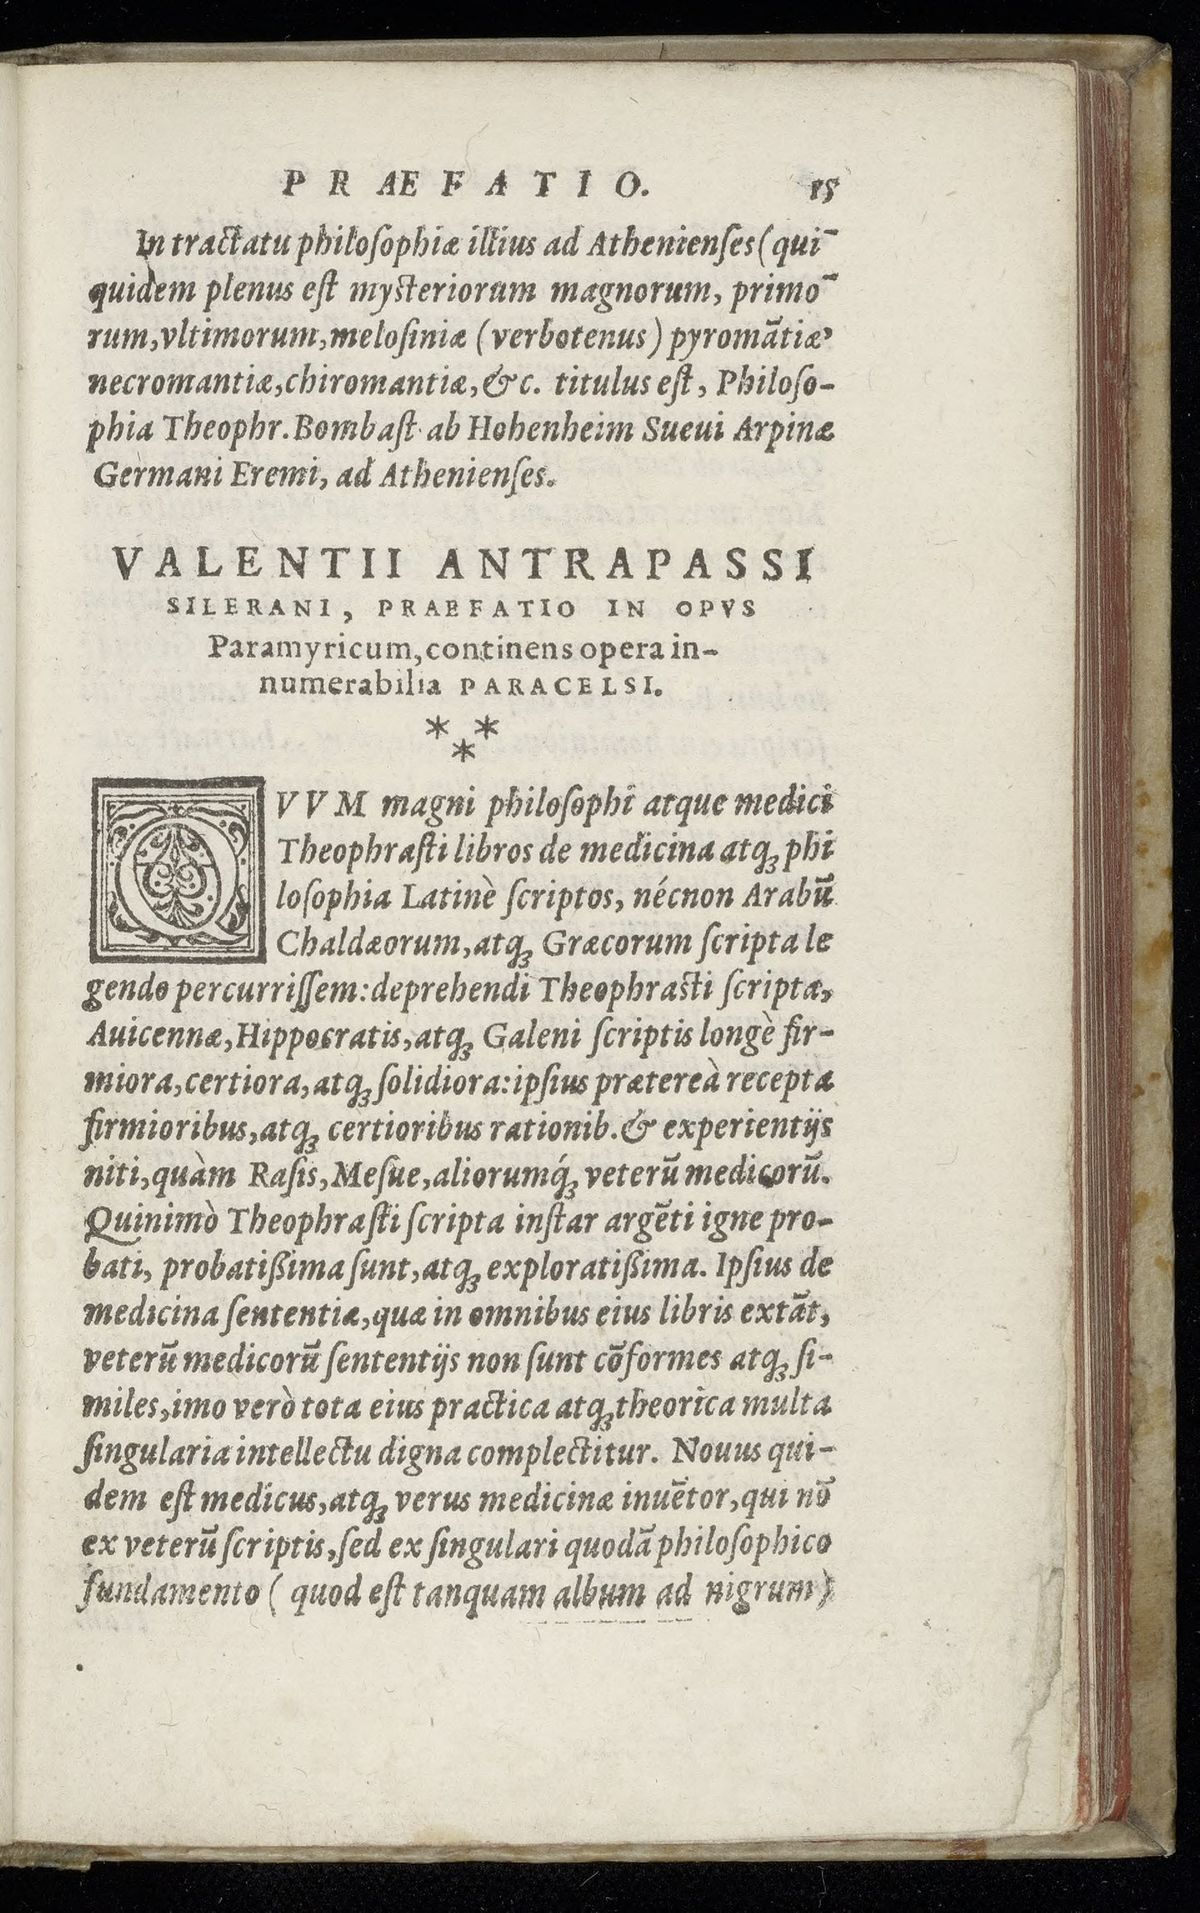 PRÆFATIO. 15
In tractatu philosophiæ illius ad Athenienses (qui-
quidem plenus est mysteriorum magnorum, primo-
rum, vltimorum, melosiniæ (verbotenus) pyromãtiæ,
necromantiæ, chiromantiæ, &c. titulus est, Philoso-
phia Theophr. Bombast ab Hohenheim Sueui Arpinæ
Germani Eremi, ad Athenienses.
VALENTII ANTRAPASSI
SILERANI, PRAEFATIO IN OPVS
Paramyricum, continens opera in-
numerabilia PARACELSI.
* * *
QVVM magni philosophi atque medici
Theophrasti libros de medicina atq; phi
losophia Latinè scriptos, nécnon Arabũ
Chaldæorum, atq; Græcorum scripta le
gendo percurrissem: deprehendi Theophrasti scripta,
Auicennæ, Hippocratis, atq; Galeni scriptis longè fir-
miora, certiora, atq; solidiora: ipsius prætereà recepta
firmioribus, atq; certioribus rationib. & experientijs
niti, quàm Rasis, Mesue, aliorumq́; veterũ medicorũ.
Quinimò Theophrasti scripta instar argẽti igne pro-
bati, probatißima sunt, atq; exploratißima. Ipsius de
medicina sententiæ, quæ in omnibus eius libris extãt,
veterũ medicorũ sententijs non sunt cõformes atq; si-
miles, imo verò tota eius practica atq; theorica multa
singularia intellectu digna complectitur. Nouus qui-
dem est medicus, atq; verus medicinæ inuẽtor, qui nõ
ex veterũ scriptis, sed ex singulari quodã philosophico
fundamento (quod est tanquam album ad nigrum)